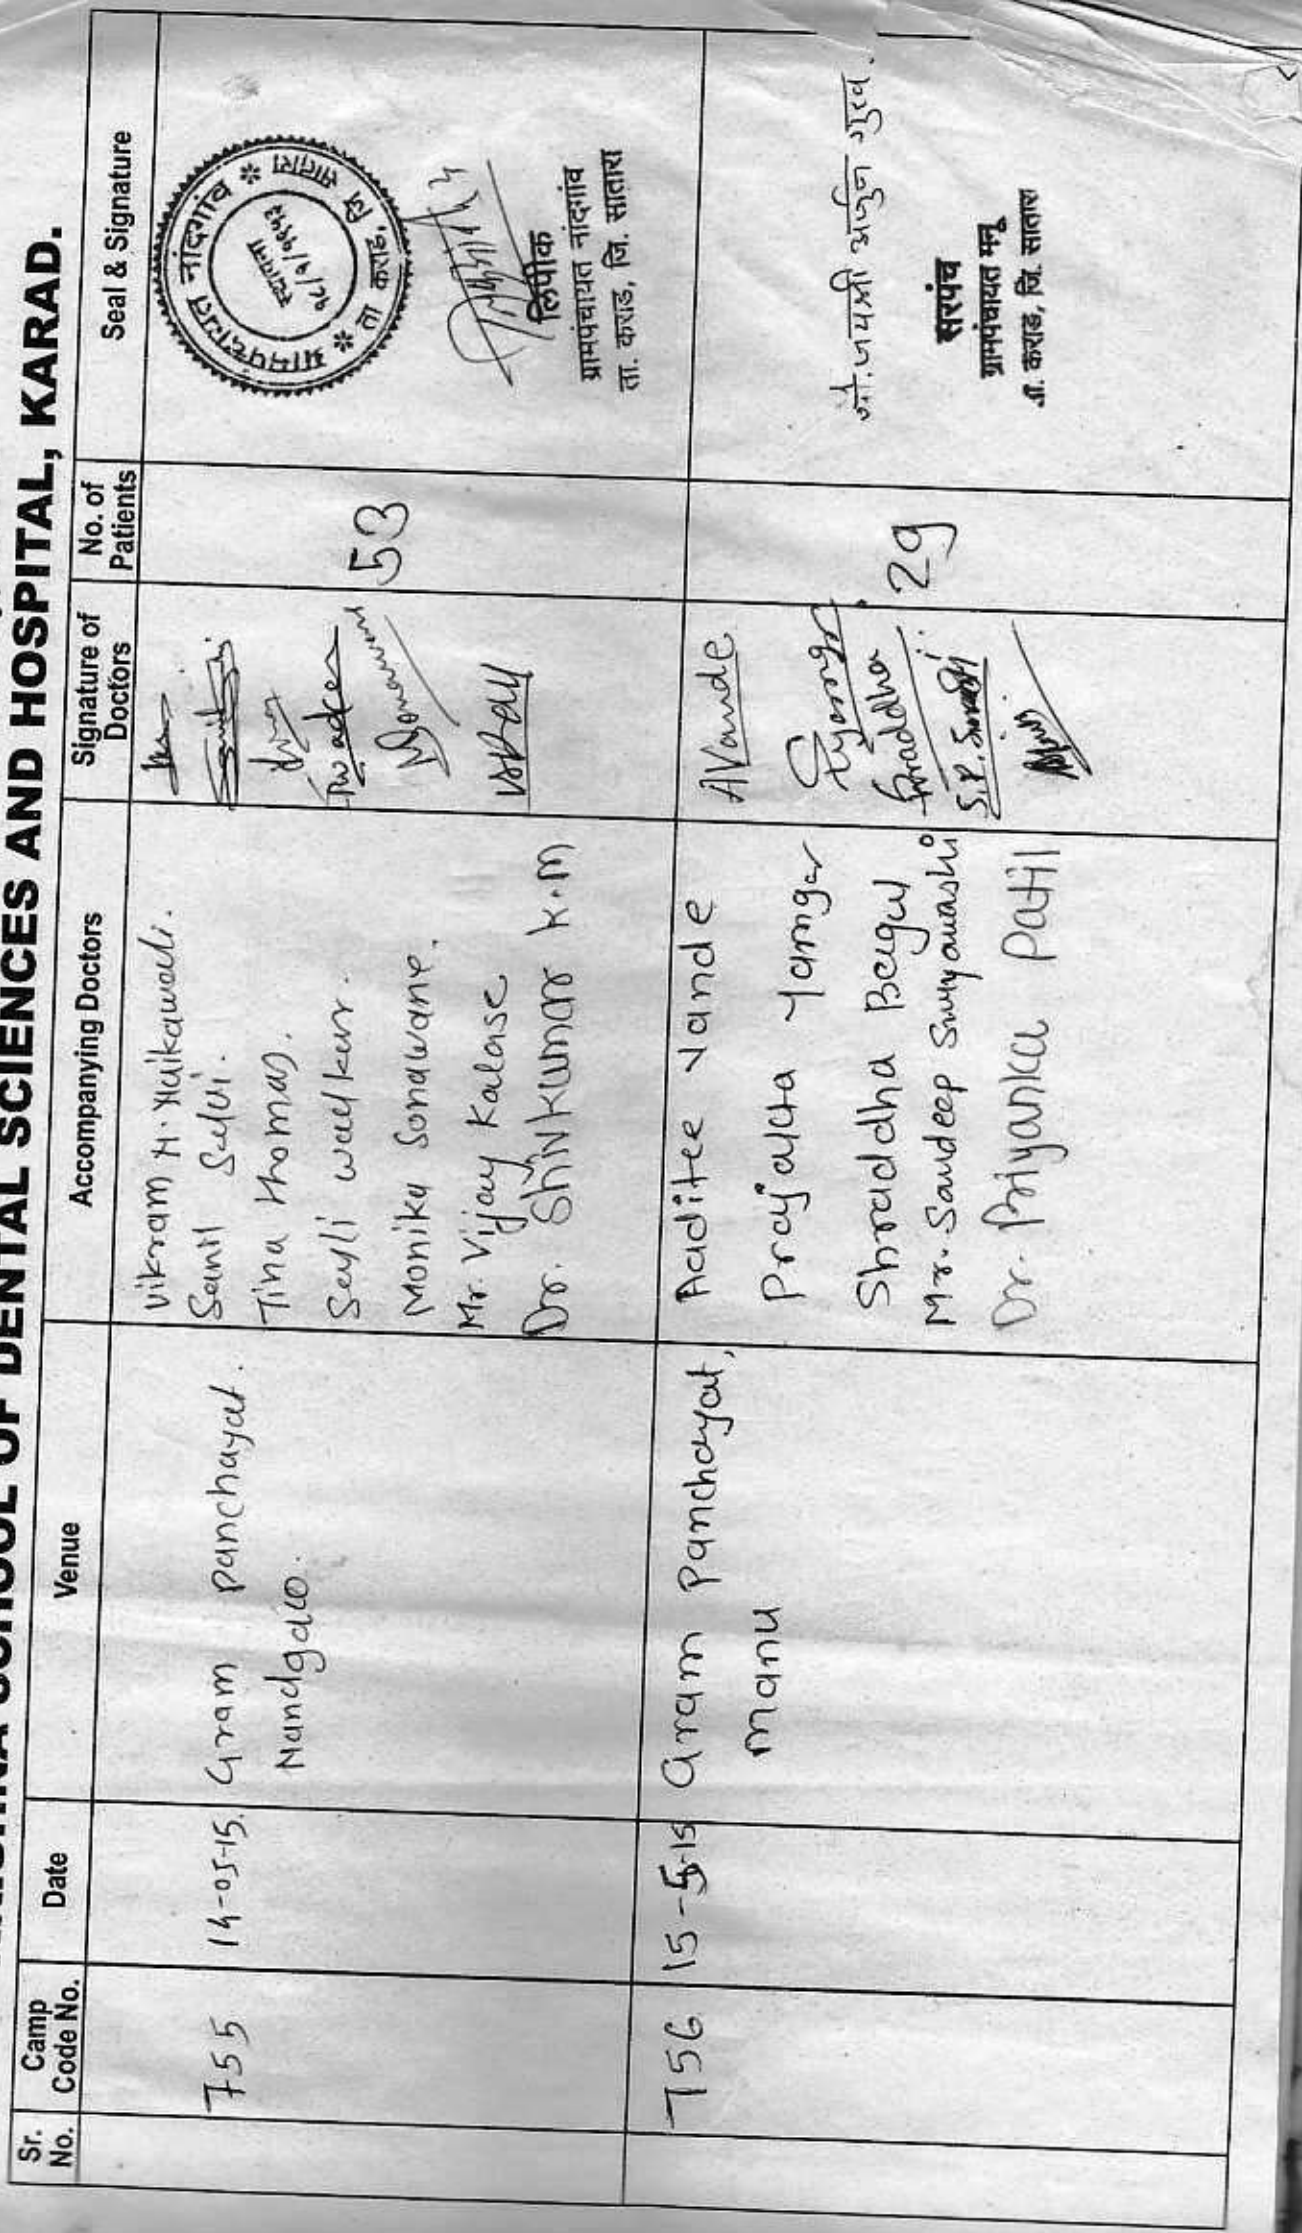 SCHOOL OF DENTAL SCIENCES AND HOSPITAL, KARAD.
Sr. No.
Camp Code No.
Date
Venue
Accompanying Doctors
Signature of Doctors
No. of Patients
Seal & Signature
755
14-05-15.
Gram panchayat.
Nandgaw.
Vikram M.
Sanil Salvi.
Tina Thomas.
Sayli
Monika Sonawane.
Mr. Vijay Kalase
Dr. Shivkumar K.M
53
ग्रामपंचायत नांदगांव
ता कराड, जि सातारा
स्थापना
लिपीक
ग्रामपंचायत नांदगांव
ता. कराड, जि. सातारा
756
15-5-15
Gram Panchayat,
Manu
Aaditee Vande
Prajakta Yamgar
Shraddha Bagul
Mr. Sandeep Suryawashi
Dr. Priyanka Patil
AVande
Shraddha
29
सौ. जयश्री अर्जुन गुरव.
सरपंच
ग्रामपंचायत मनू
ता. कराड, जि. सातारा